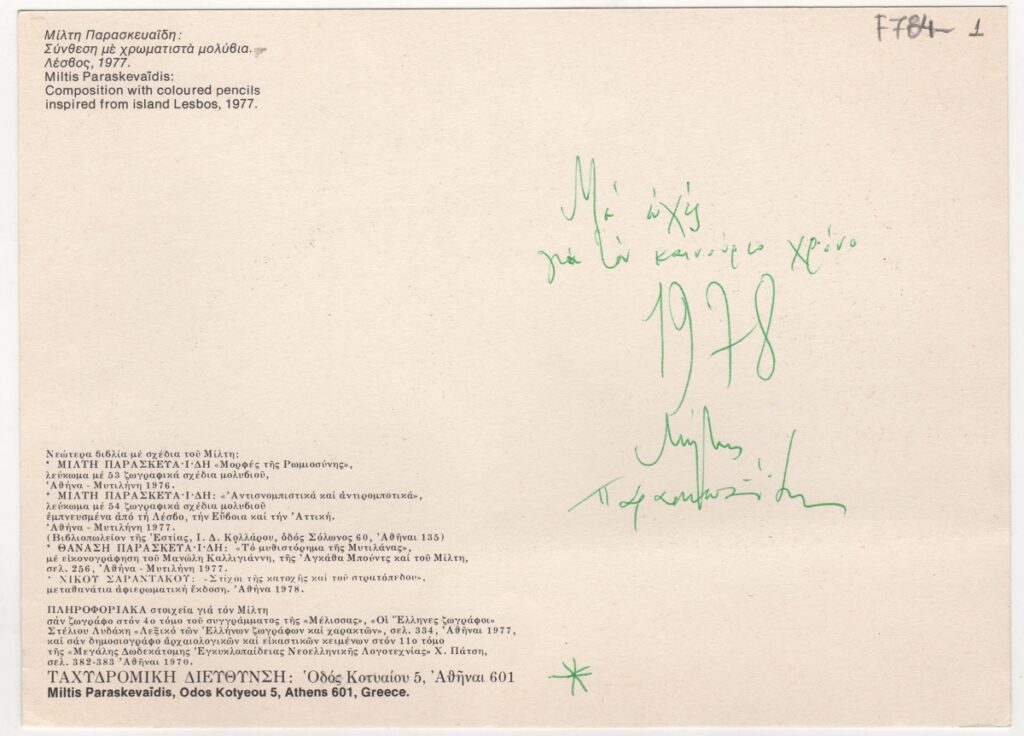 Μίλτη Παρασκευαΐδη:
Σύνθεση μὲ χρωματιστὰ μολύβια.
Λέσβος, 1977.
Miltis Paraskevaïdis:
Composition with coloured pencils
inspired from island Lesbos, 1977.
F784 1
Μὲ εὐχὲς
γιὰ τὸν καινούριο χρόνο
1978
Μίλτης
Παρασκευαΐδης
Νεώτερα βιβλία μέ σχέδια τοῦ Μίλτη:
* ΜΙΛΤΗ ΠΑΡΑΣΚΕΥΑ·Ι·ΔΗ «Μορφές τῆς Ρωμιοσύνης»,
λεύκωμα μέ 53 ζωγραφικά σχέδια μολυβιοῦ,
Ἀθήνα - Μυτιλήνη 1976.
* ΜΙΛΤΗ ΠΑΡΑΣΚΕΥΑ·Ι·ΔΗ: «Ἀντισνομπιστικά καί ἀντιρομποτικά»,
λεύκωμα μέ 54 ζωγραφικά σχέδια μολυβιοῦ
ἐμπνευσμένα ἀπό τή Λέσβο, τήν Εὔβοια καί τήν Ἀττική.
Ἀθήνα - Μυτιλήνη 1977.
(Βιβλιοπωλεῖον τῆς Ἑστίας, Ι. Δ. Κολλάρου, ὁδός Σόλωνος 60, Ἀθῆναι 135)
* ΘΑΝΑΣΗ ΠΑΡΑΣΚΕΥΑ·Ι·ΔΗ: «Τό μυθιστόρημα τῆς Μυτιλάνας»,
μέ εἰκονογράφηση τοῦ Μανώλη Καλλιγιάννη, τῆς Ἀγκάθα Μπούντς καί τοῦ Μίλτη,
σελ. 256, Ἀθήνα - Μυτιλήνη 1977.
* ΧΙΚΟΥ ΣΑΡΑΝΤΑΚΟΥ: «Στίχοι τῆς κατοχῆς καί τοῦ στρατόπεδου»,
μεταθανάτια ἀφιερωματική ἔκδοση. Ἀθήνα 1978.
ΠΛΗΡΟΦΟΡΙΑΚΑ στοιχεῖα γιά τόν Μίλτη
σάν ζωγράφο στόν 4ο τόμο τοῦ συγγράμματος τῆς «Μέλισσας», «Οἱ Ἕλληνες ζωγράφοι»
Στέλιου Λυδάκη «Λεξικό τῶν Ἑλλήνων ζωγράφων καί χαρακτῶν», σελ. 334, Ἀθῆναι 1977,
καί σάν δημοσιογράφο ἀρχαιολογικῶν καί εἰκαστικῶν κειμένων στόν 11ο τόμο
τῆς «Μεγάλης Δωδεκάτομης Ἐγκυκλοπαίδειας Νεοελληνικῆς Λογοτεχνίας» Χ. Πάτση,
σελ. 382-383 Ἀθῆναι 1970.
ΤΑΧΥΔΡΟΜΙΚΗ ΔΙΕΥΘΥΝΣΗ: Ὁδός Κοτυαίου 5, Ἀθῆναι 601
Miltis Paraskevaïdis, Odos Kotyeou 5, Athens 601, Greece.